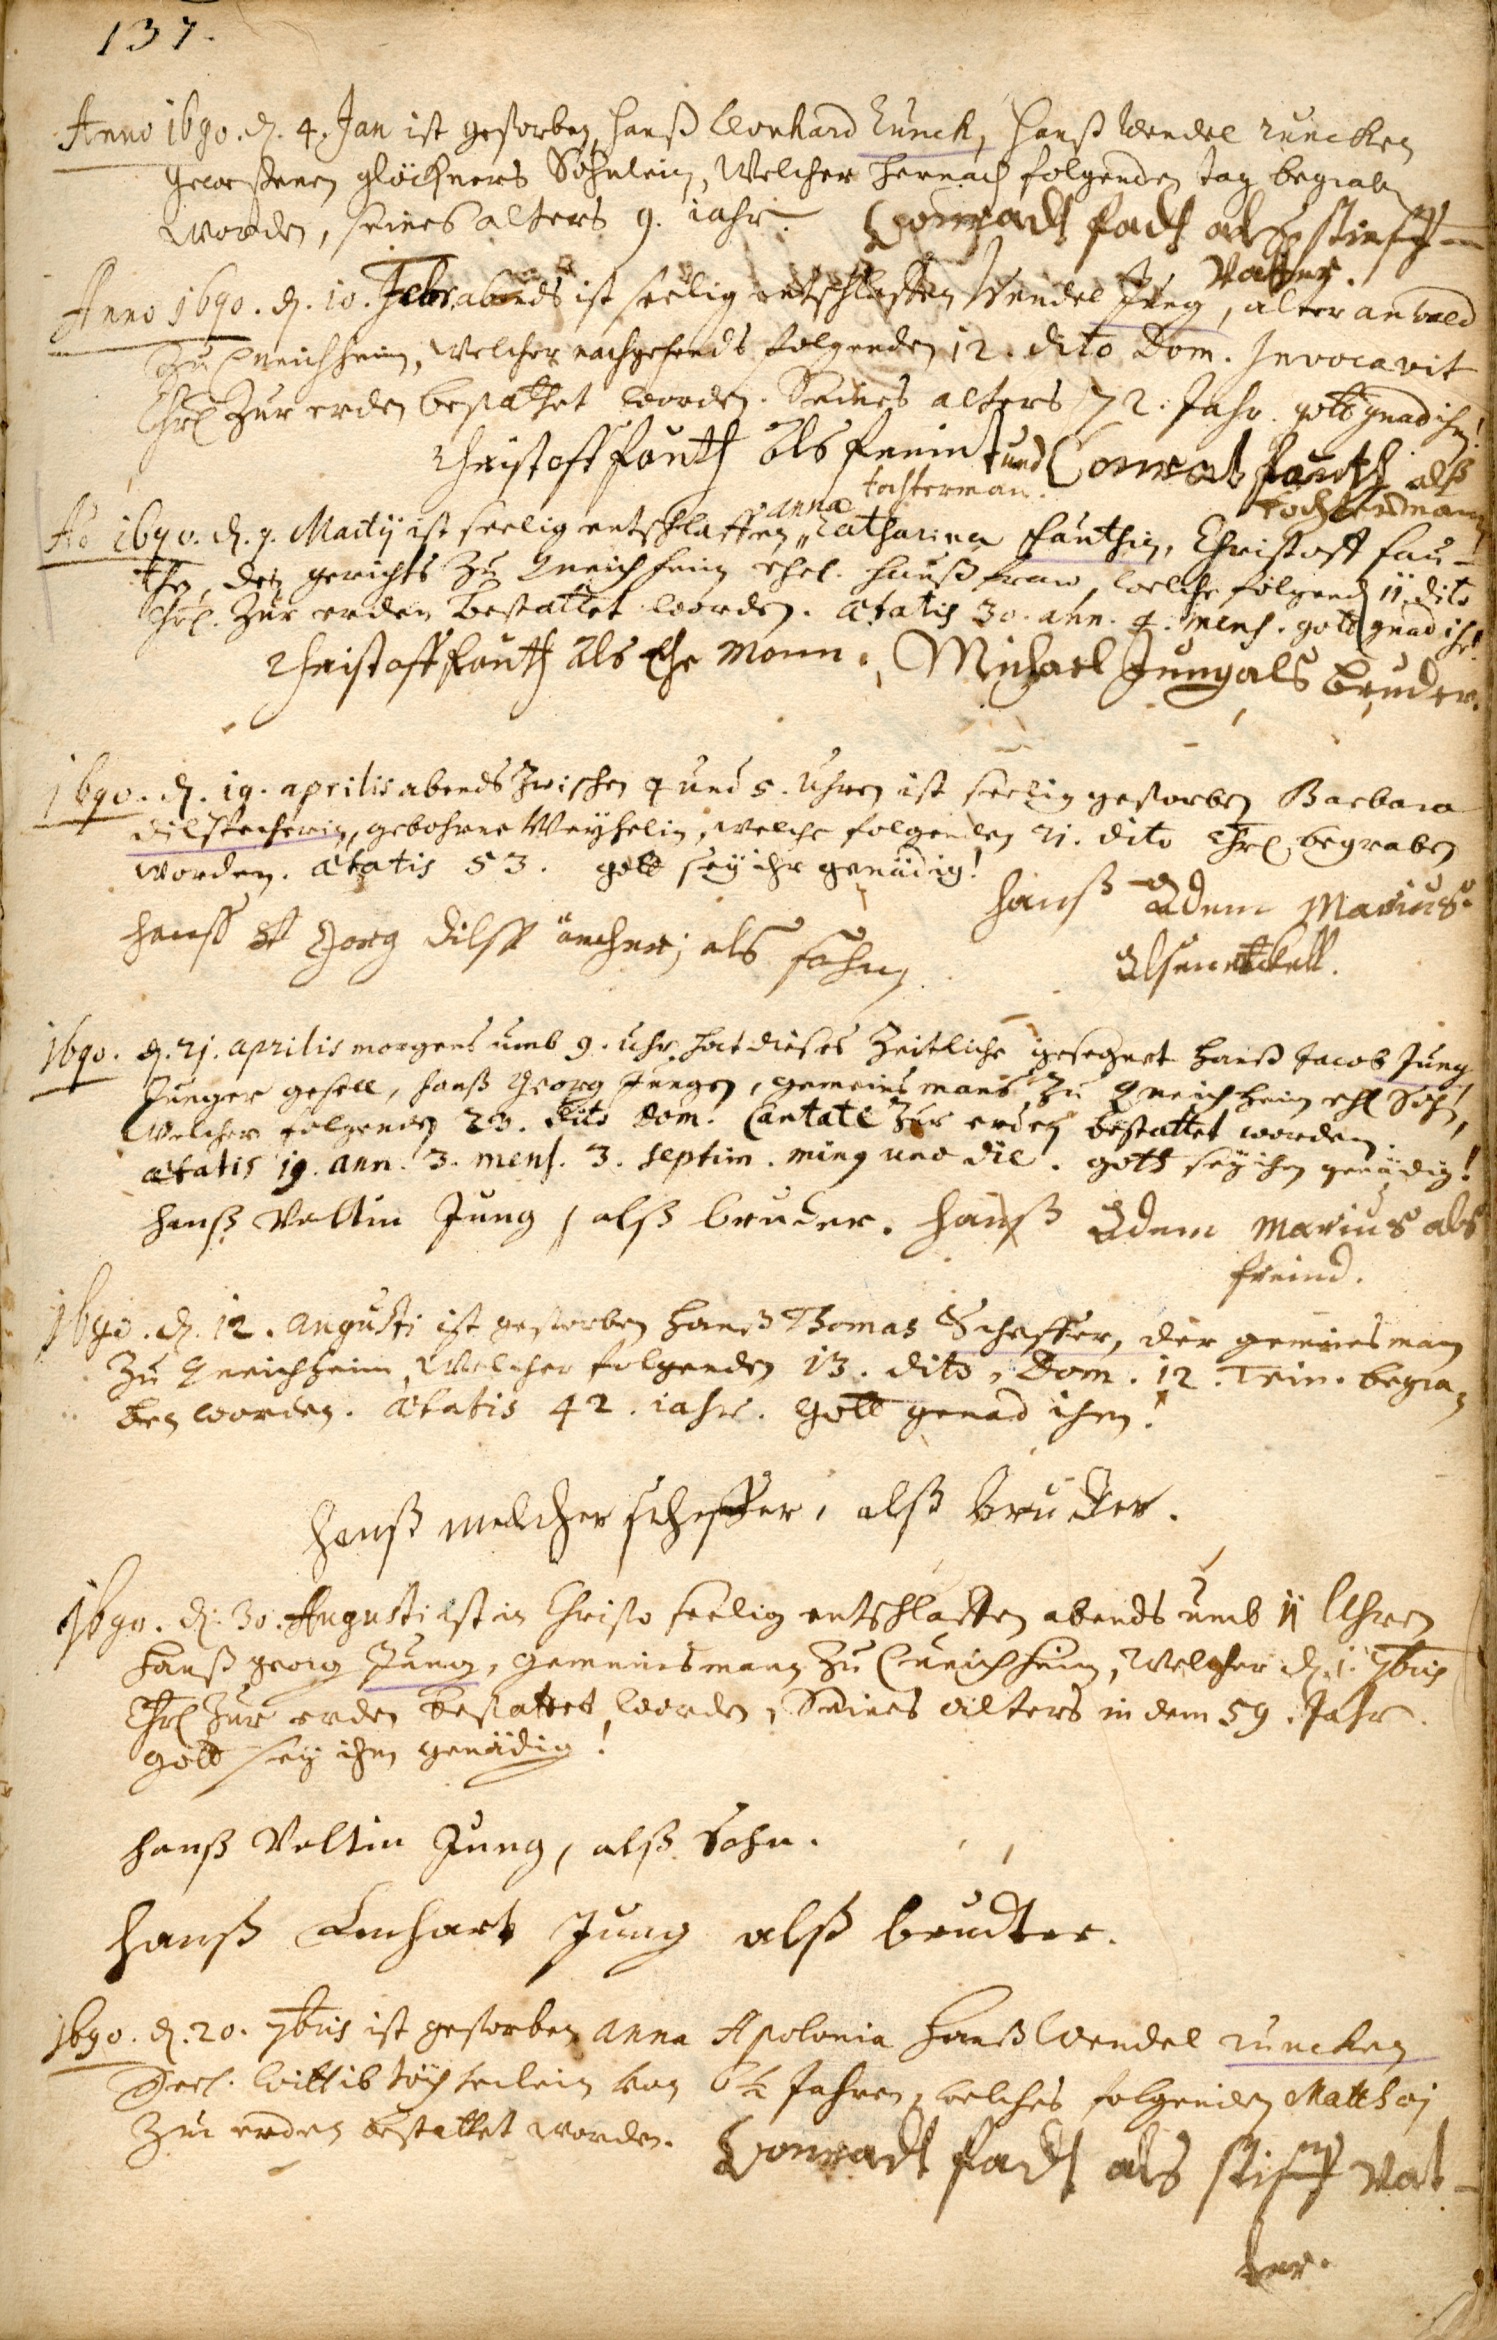 137.
Anno 1690. d. 4. Jan ist gestorben, Hanß Leonhard Runck, Hanß Wendel Runcken
gewesenen glöckners Söhnlein, Welcher hernach folgenden tag begraben
worden, seines alters 9. iahr. Conradt fadt alß stieff-
Vatter.
Anno 1690. d. 10. Febr. abends ist seelig entschlaffen Wendel Jung, alter anwald
zu Queichheim, welcher nachgehends folgenden 12. dito Dom. Invocavit
Chrl. zur erden bestattet worden. Seines alters 72. Jahr. gott gnad ihm!
Christoff fauth als freind und Conrat fauth alß
tochterman. tochterman
Ao 1690. d. 9. Martij ist seelig entschlaffen anna Catharina fauthin, Christoff fau-
then, deß gerichts zu Queichheim ehel. haußfraw, welche folgend 11 dito
Chrl. zur erden bestattet worden. ætatis 30. ann. 4. mens. gott gnad ihr!
Christoff fauth als Ehe Mann. Michael Jung als bruder.
1690. d. 19. aprilis abends zwischen 4 und 5. Uhren ist seelig gestorben Barbara
dilsstecherin, gebohrne Weyhelin, welche folgenden 21. dito Chrl. begraben
worden. ætatis 53. gott sey ihr genädig!
hanß Adem Marius
hanß Jorg dilss ancher; als sohn
1690. d. 21. aprilis morgens umb 9. uhr hat dieses Zeitliche gesegnet Hanß Jacob Jung
Junger gesell, Hanß Georg Jungen, gemeinsmans zu Queichheim ehl. Sohn,
welcher folgends 23. dito Dom. Cantate zur erden bestattet worden.
ætatis 19. ann. 3. mens. 3. septim. ming uno die. gott sey ihm genädig!
hanß Veltin Jung, alß bruder. hanß Adem Marius als
freind.
1690. d. 12. Augusti ist gestorben Hanß Thomas Schaffer, der gemeinsman
zu Queichheim, welcher folgenden 13. dito, Dom. 12. Trin. begra-
ben worden. ætatis 42. iahr. Gott genad ihm!
Hanß melcher scheffer, alß bruder.
1690. d. 30. Augusti ist in Christo seelig entschlaffen abends umb 11 Uhren
Hanß georg Jung, Gemeinsmann zu Queichheim, welcher d. 1. 7bris
Chrl. zur erden bestattet worden, Seines alters in dem 59. Jahr.
Gott sey ihm genädig!
Hanß Veltin Jung, alß Sohn.
Hanß Lenhart Jung alß brudter.
1690. d. 20. 7bris ist gestorben Anna Apolonia Hanß Wendel Runcken
Seel. wittib töchterlein von 6½ Jahren, welches folgenden Matthæj
zur erden bestattet worden. Conradt fadt als stieff vat-
ter.